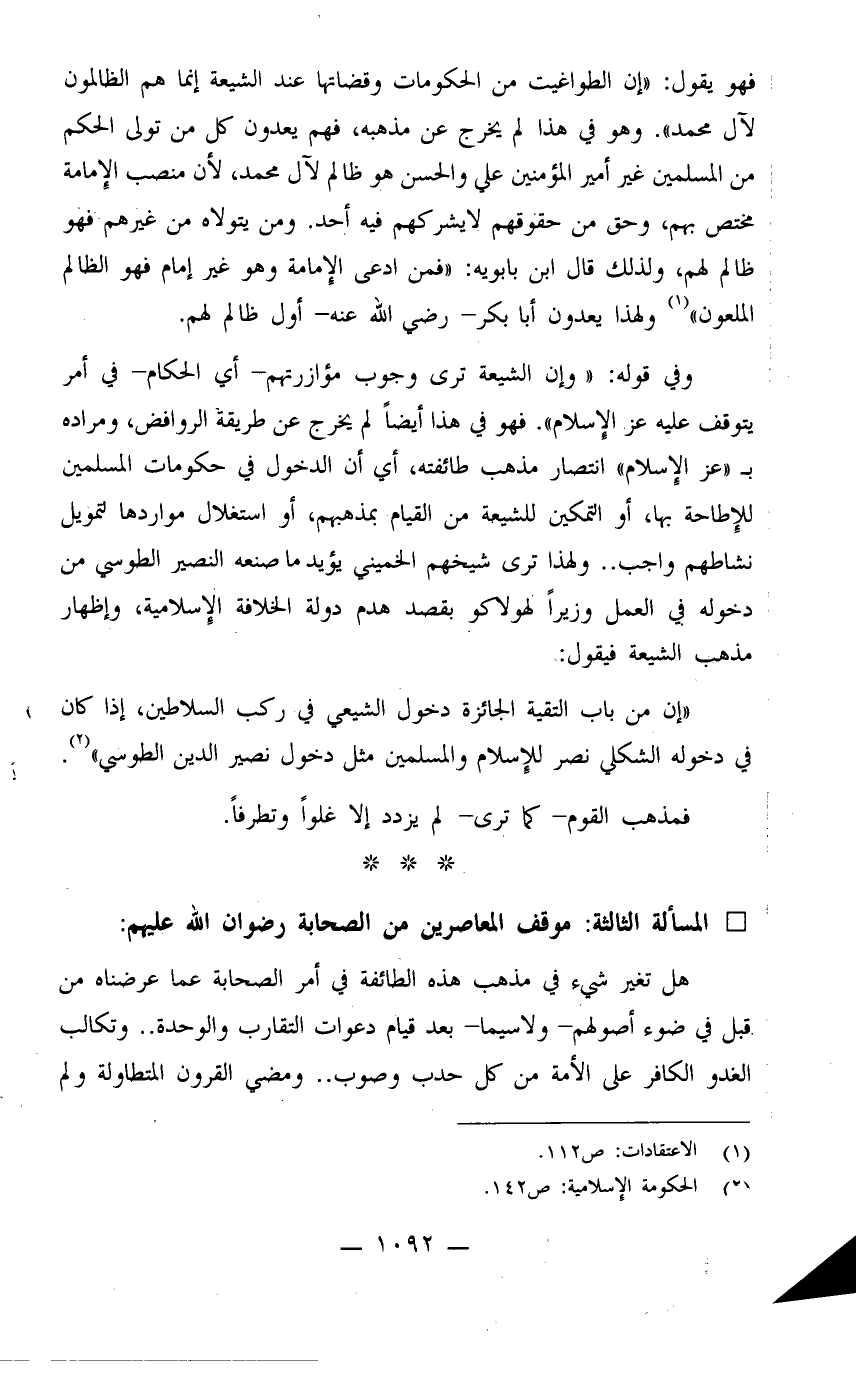 فهو يقول: «إن الطواغيت من الحكومات وقضاتها عند الشيعة إنما هم الظالمون
لآل محمد». وهو في هذا لم يخرج عن مذهبه، فهم يعدون كل من تولى الحكم
من المسلمين غير أمير المؤمنين علي والحسن هو ظالم لآل محمد، لأن منصب الإمامة
مختص بهم، وحق من حقوقهم لايشركهم فيه أحد. ومن يتولاه من غيرهم فهو
ظالم لهم، ولذلك قال ابن بابويه: «فمن ادعى الإمامة وهو غير إمام فهو الظالم
الملعون»(١) ولهذا يعدون أبا بكر– رضي الله عنه– أول ظالم لهم.
وفي قوله: « وإن الشيعة ترى وجوب مؤازرتهم– أي الحكام– في أمر
يتوقف عليه عز الإسلام». فهو في هذا أيضاً لم يخرج عن طريقة الروافض، ومراده
بـ «عز الإسلام» انتصار مذهب طائفته، أي أن الدخول في حكومات المسلمين
للإطاحة بها، أو التمكين للشيعة من القيام بمذهبهم، أو استغلال مواردها لتمويل
نشاطهم واجب.. ولهذا ترى شيخهم الخميني يؤيد ما صنعه النصير الطوسي من
دخوله في العمل وزيراً لهولاكو بقصد هدم دولة الخلافة الإسلامية، وإظهار
مذهب الشيعة فيقول:
«إن من باب التقية الجائزة دخول الشيعي في ركب السلاطين، إذا كان
في دخوله الشكلي نصر للإسلام والمسلمين مثل دخول نصير الدين الطوسي»(٢).
فمذهب القوم– كما ترى– لم يزدد إلا غلواً وتطرفاً.
* * *
□ المسألة الثالثة: موقف المعاصرين من الصحابة رضوان الله عليهم:
هل تغير شيء في مذهب هذه الطائفة في أمر الصحابة عما عرضناه من
قبل في ضوء أصولهم– ولاسيما– بعد قيام دعوات التقارب والوحدة.. وتكالب
الغدو الكافر على الأمة من كل حدب وصوب.. ومضي القرون المتطاولة ولم
(١) الاعتقادات: ص١١٢.
(٢) الحكومة الإسلامية: ص١٤٢.
— ١٠٩٢ —